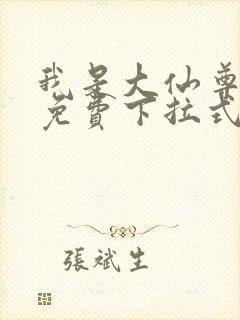 我是大仙尊
免費下拉式
張斌生